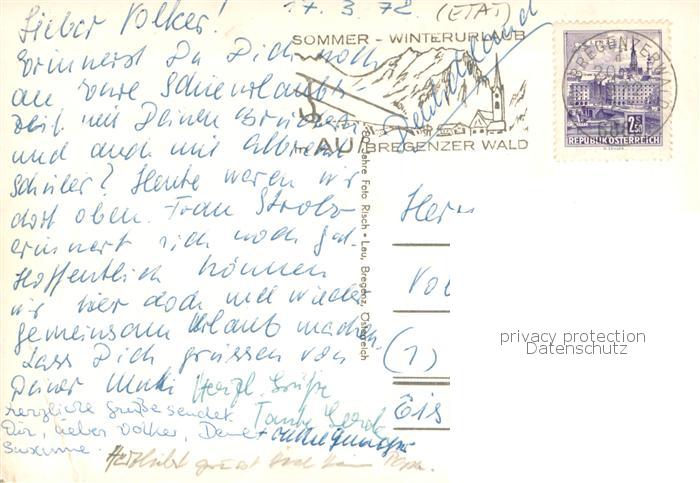 17. 3. 72 (ETAT)
Lieber Volker!
Erinnerst Du Dich noch
an Eure Schieurlaubs-
zeit mit Deinen Brüdern
und auch mit Albrecht
Schüler? Heute waren wir
dort oben. Frau Strolz
erinnert sich noch gut.
Hoffentlich können
wir hier doch mal wieder
gemeinsam Urlaub machen.
Lass Dich grüssen von
Deiner Mutti Herzl. Grüße
Tante Gerda
herzliche Grüße sendet
Dir, lieber Volker, Deine
Susanne.
Herzlichst grüsst Dich Dein Papa.
SOMMER - WINTERURLAUB
AU BREGENZER WALD
Deutschland
BREGENZERWALD
2.50
REPUBLIK ÖSTERREICH
Jahre Foto Risch • Lau, Bregenz, Österreich
Herr
Vol
(1)
Eis
privacy protection
Datenschutz